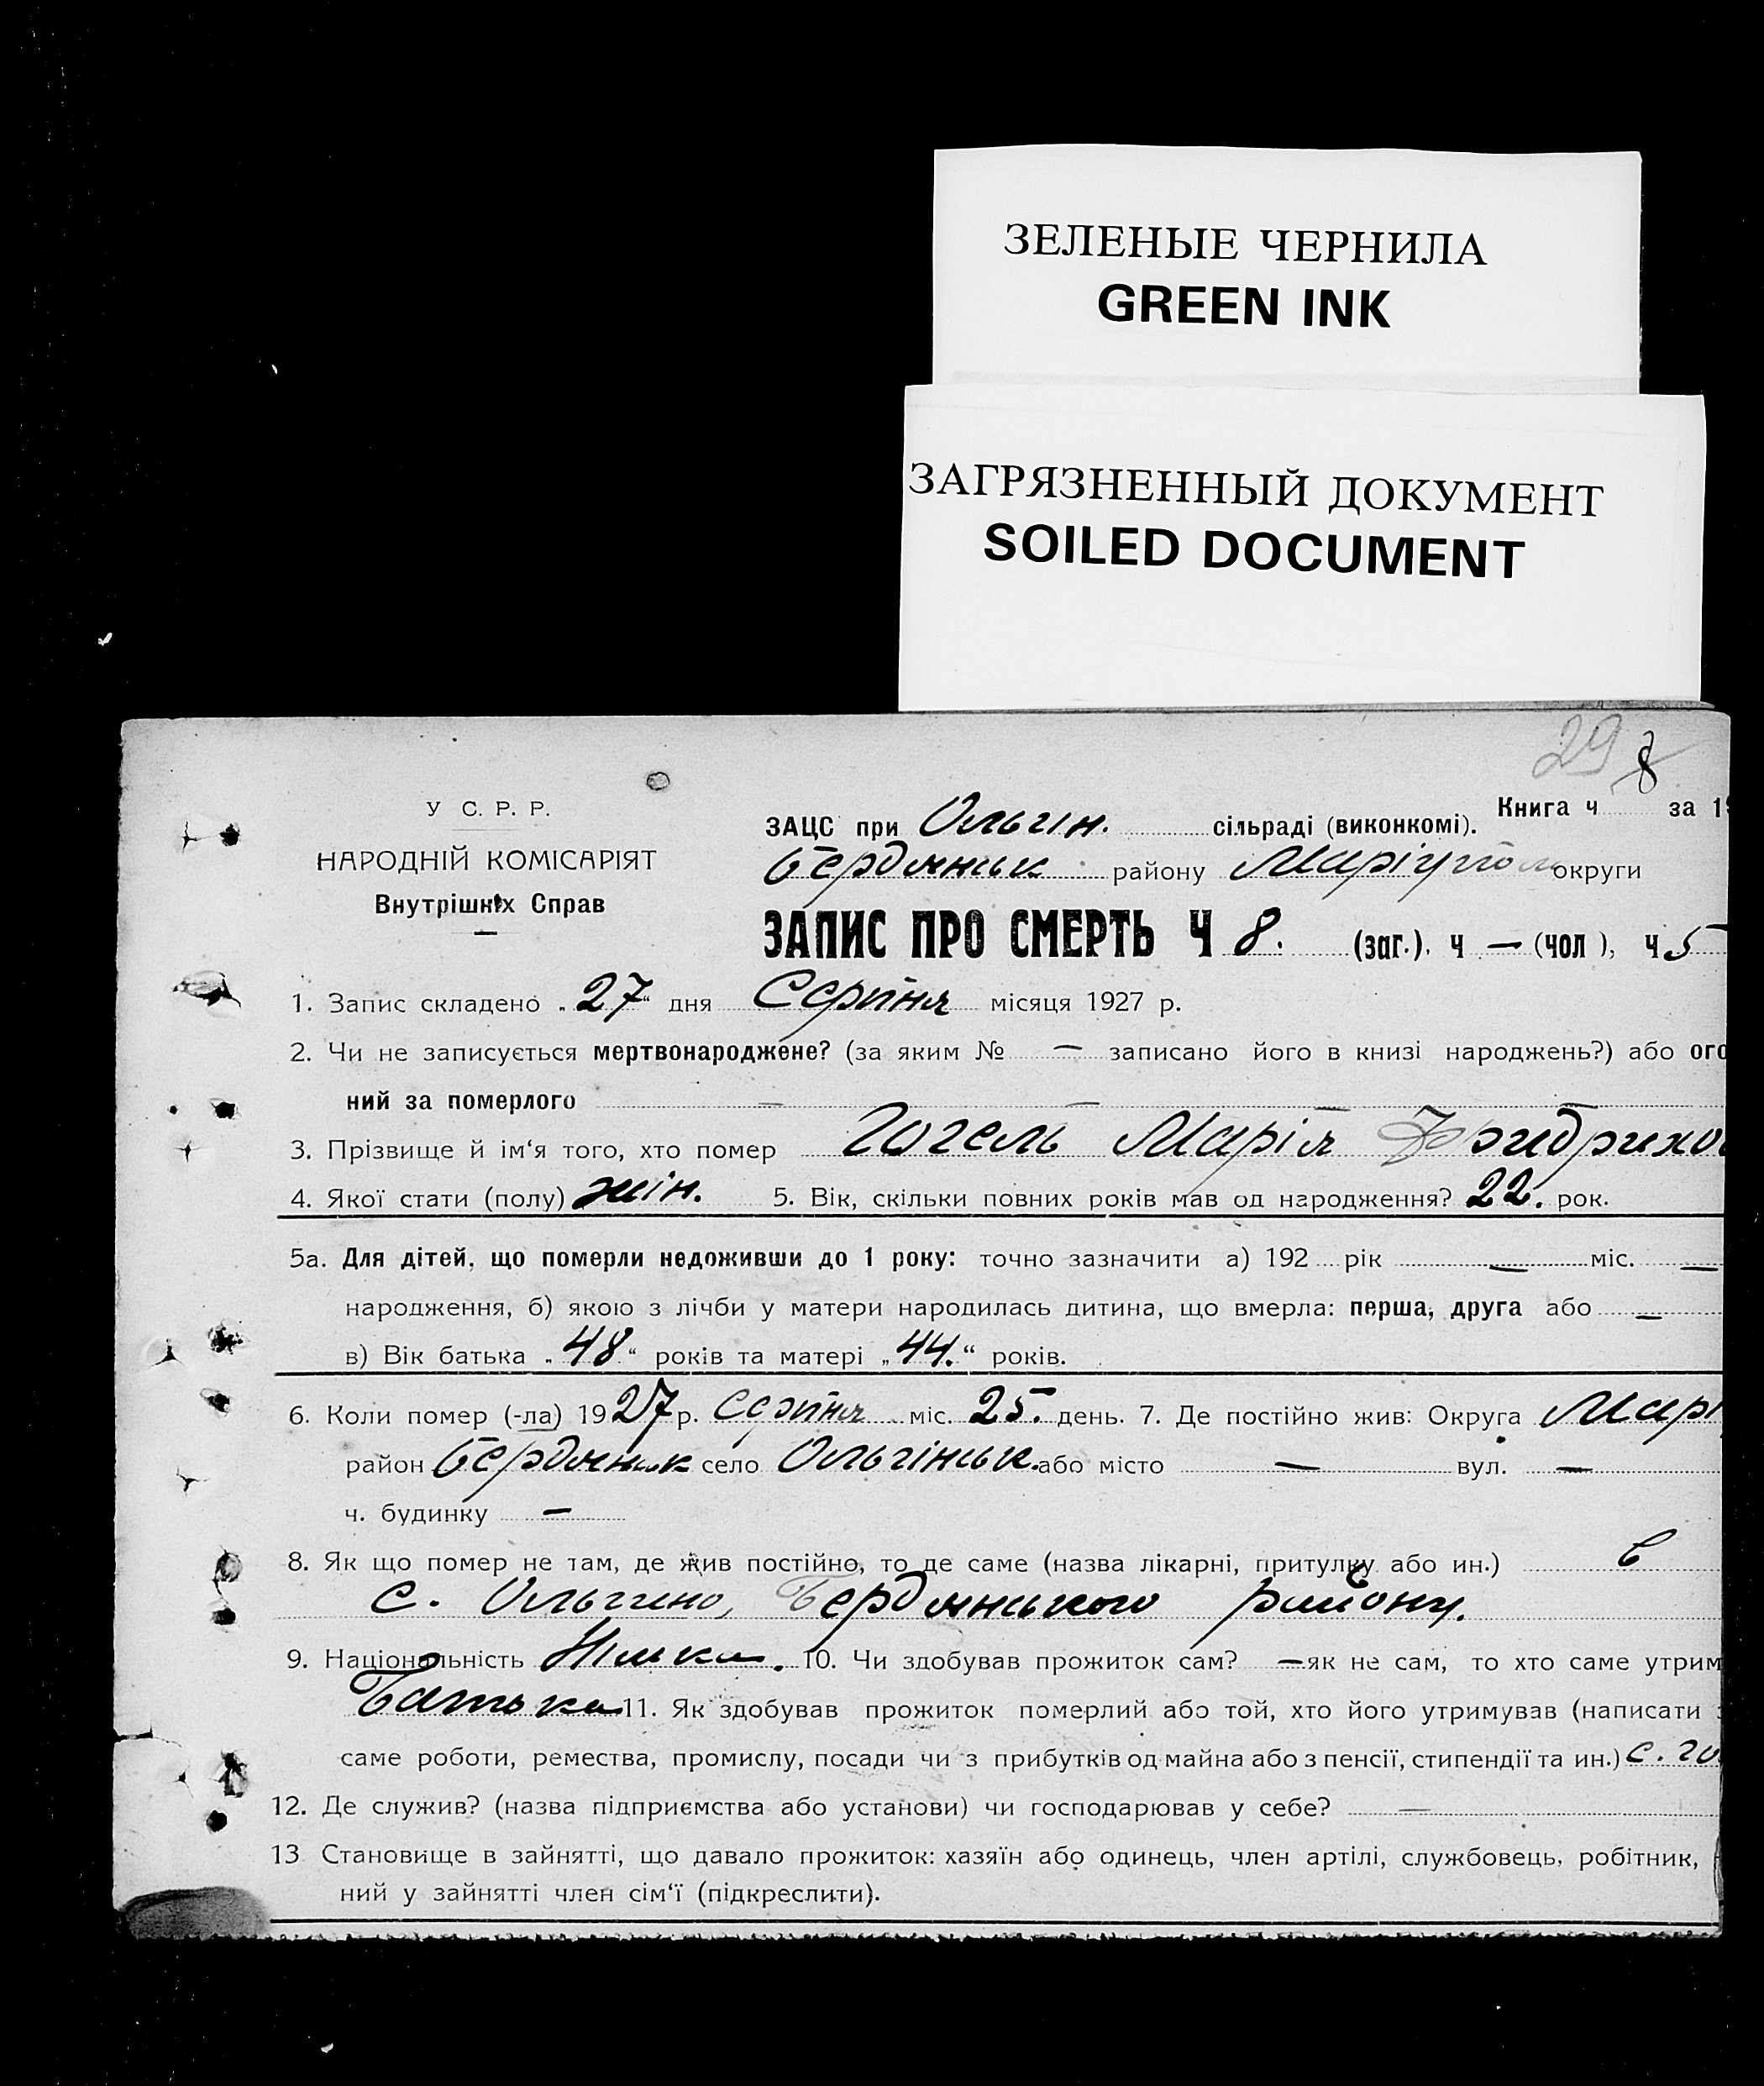 ЗЕЛЕНЫЕ ЧЕРНИЛА
GREEN INK
ЗАГРЯЗНЕННЫЙ ДОКУМЕНТ
SOILED DOCUMENT
29 8
У С. Р. Р.
НАРОДНІЙ КОМІСАРІЯТ
Внутрішніх Справ
Книга ч за 19
ЗАЦС при Ольгін. сільраді (виконкомі).
Бердянськ району Маріупол округи
ЗАПИС ПРО СМЕРТЬ Ч 8. (заг.). ч — (чол ), ч 5
1. Запис складено „27“ дня Серпня місяця 1927 р.
2. Чи не записується мертвонароджене? (за яким № — записано його в книзі народжень?) або ого
ний за померлого — — — —
3. Прізвище й ім‘я того, хто помер Гогель Марія Фридрихо
4. Якої стати (полу) жін. 5. Вік, скільки повних років мав од народження? 22. рок.
5а. Для дітей, що померли недоживши до 1 року: точно зазначити а) 192 рік — міс. —
народження, б) якою з лічби у матери народилась дитина, що вмерла: перша, друга або —
в) Вік батька „48“ років та матері „44.“ років.
6. Коли помер (-ла) 1927 р. Серпня міс. 25. день. 7. Де постійно жив: Округа Марі
район Бердянськ село Ольгінськ. або місто — вул. —
ч. будинку —
8. Як що помер не там, де жив постійно, то де саме (назва лікарні, притулку або ин.) в
с. Ольгино, Бердянського району.
9. Національність Німка. 10. Чи здобував прожиток сам? — як не сам, то хто саме утрим
Батька 11. Як здобував прожиток померлий або той, хто його утримував (написати з
саме роботи, ремества, промислу, посади чи з прибутків од майна або з пенсії, стипендії та ин.) с. го
12. Де служив? (назва підприємства або установи) чи господарював у себе? —
13 Становище в зайнятті, що давало прожиток: хазяїн або одинець, член артілі, службовець, робітник,
ний у зайнятті член сім‘ї (підкреслити).